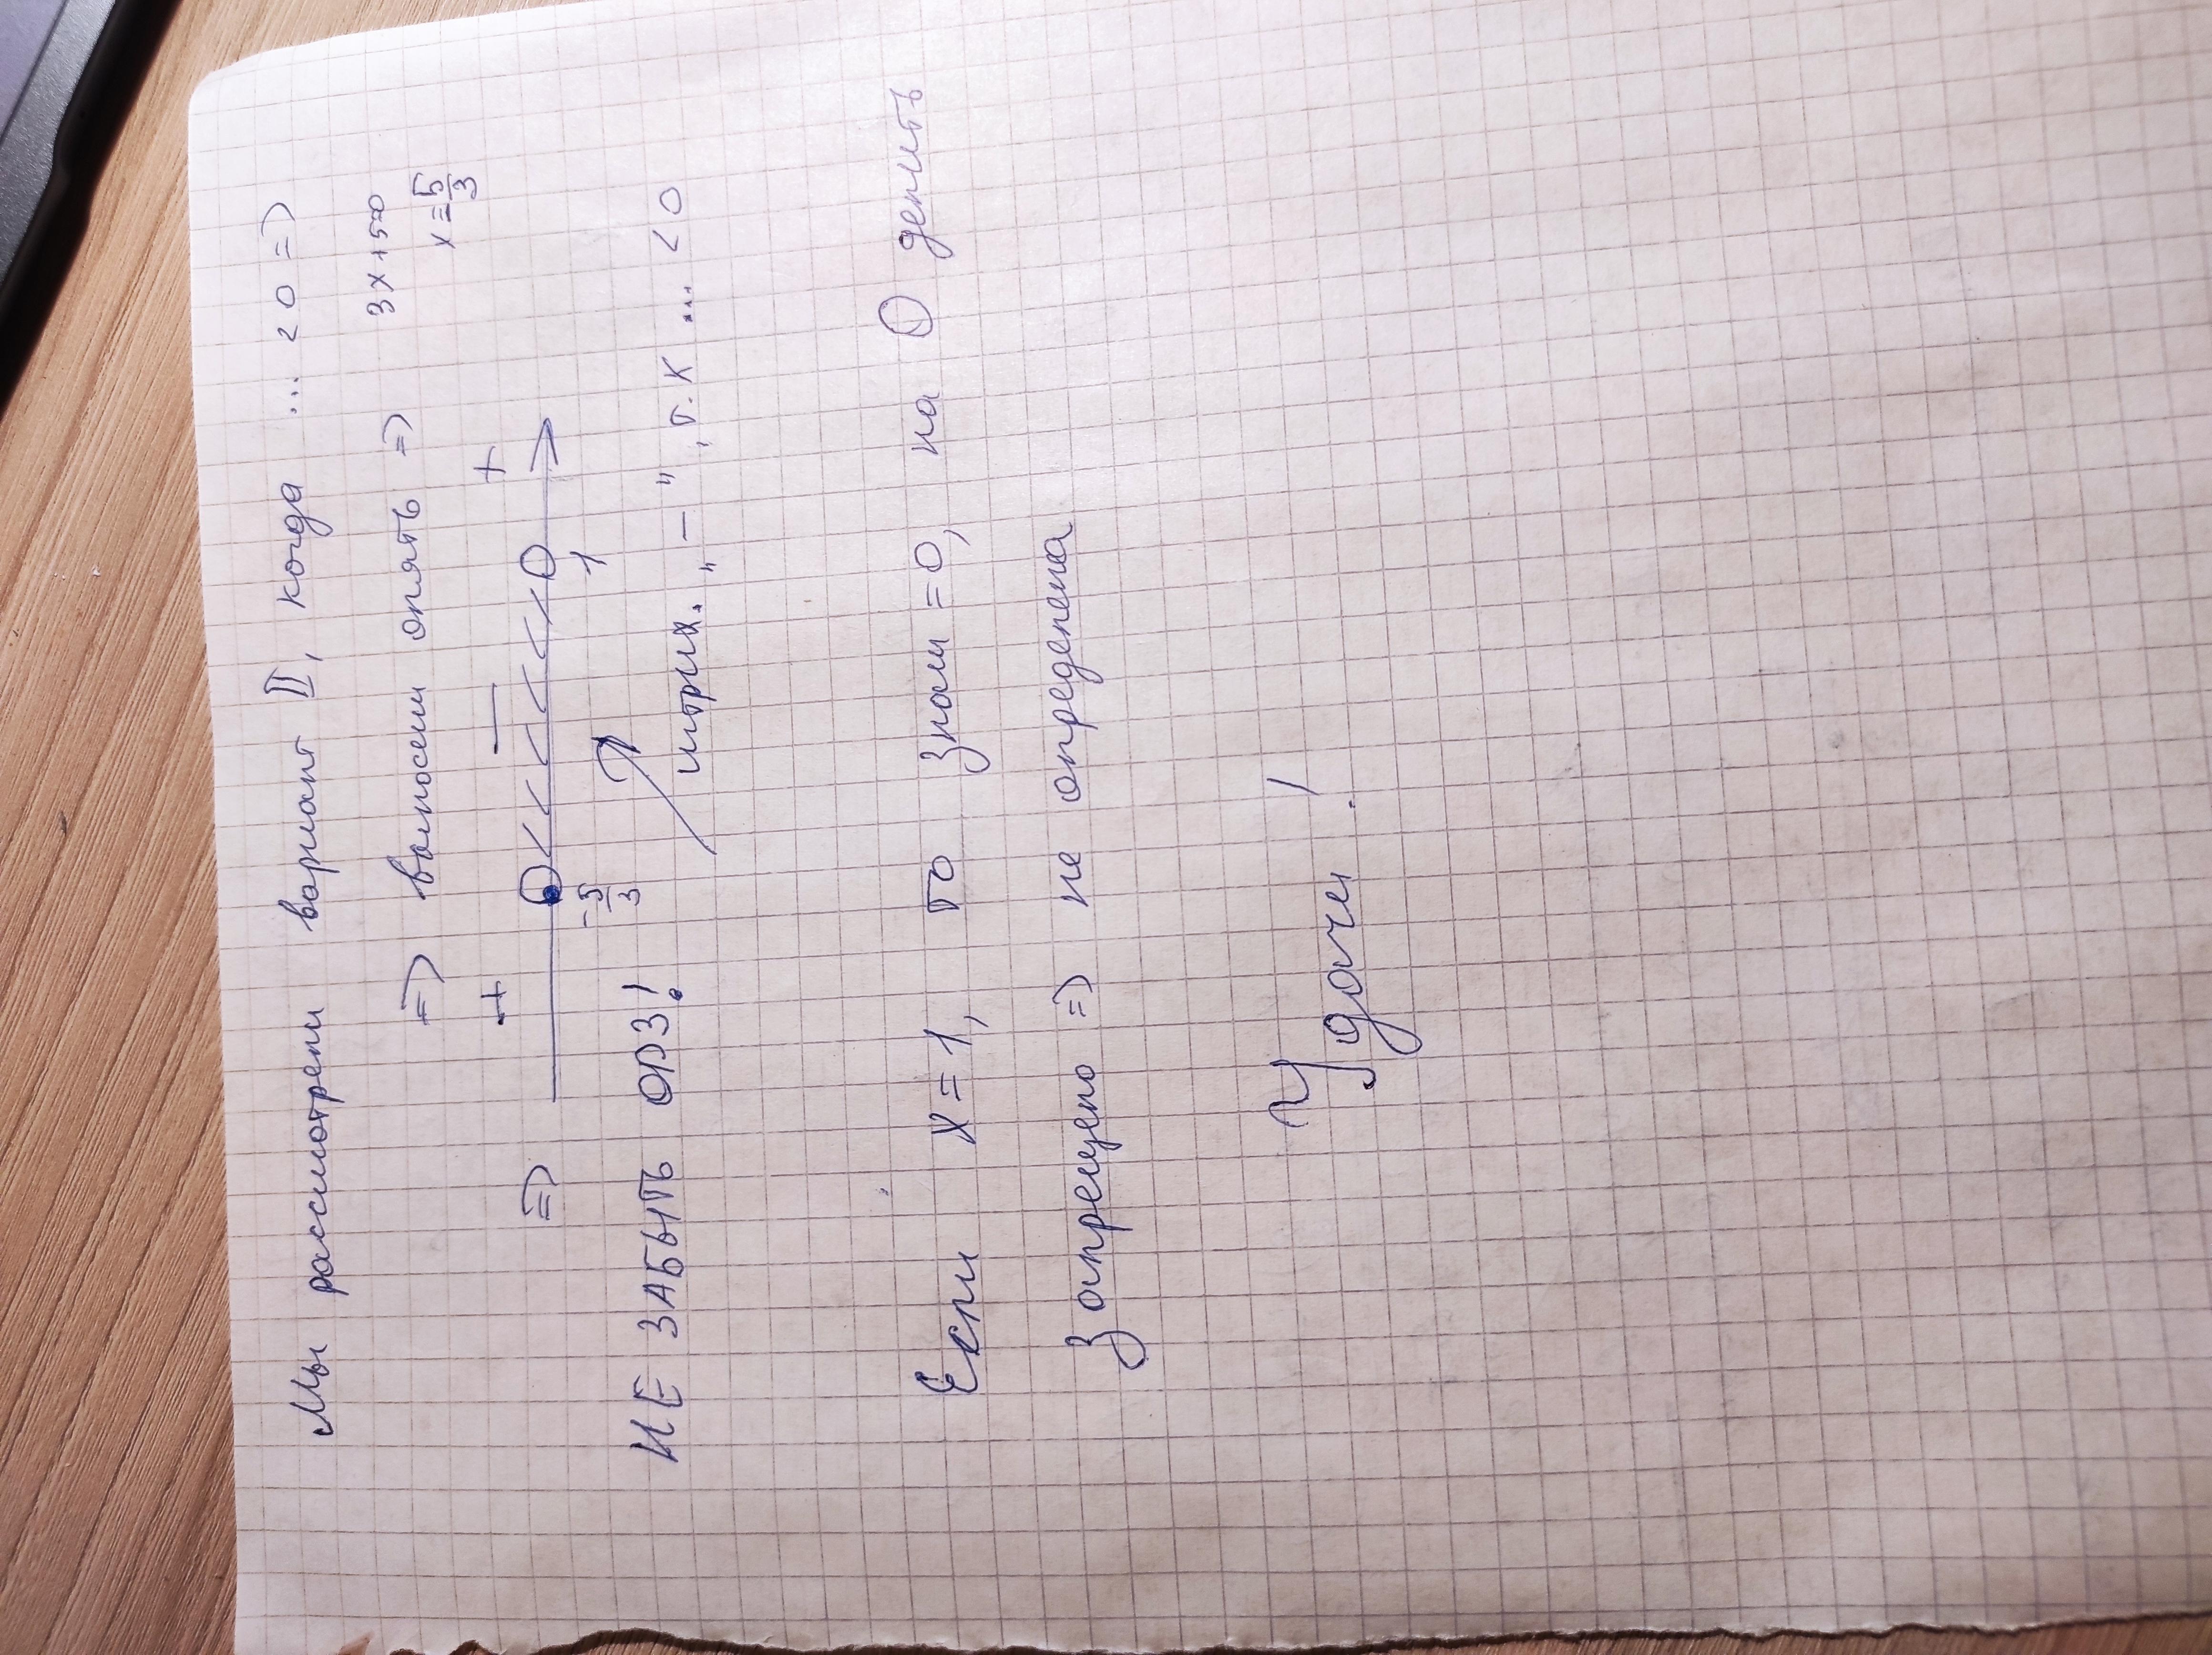 Мы рассмотрели вариант II, когда ... <0 =>
=> выносим опять => 3x+5=0
x=5/3
+ — +
=> -5/3 1
НЕ ЗАБЫТЬ ОДЗ! штрих. „—", т.к ... <0
Если x=1, то Знам=0, на 0 делить
Запрещено => не определена
Удачи!